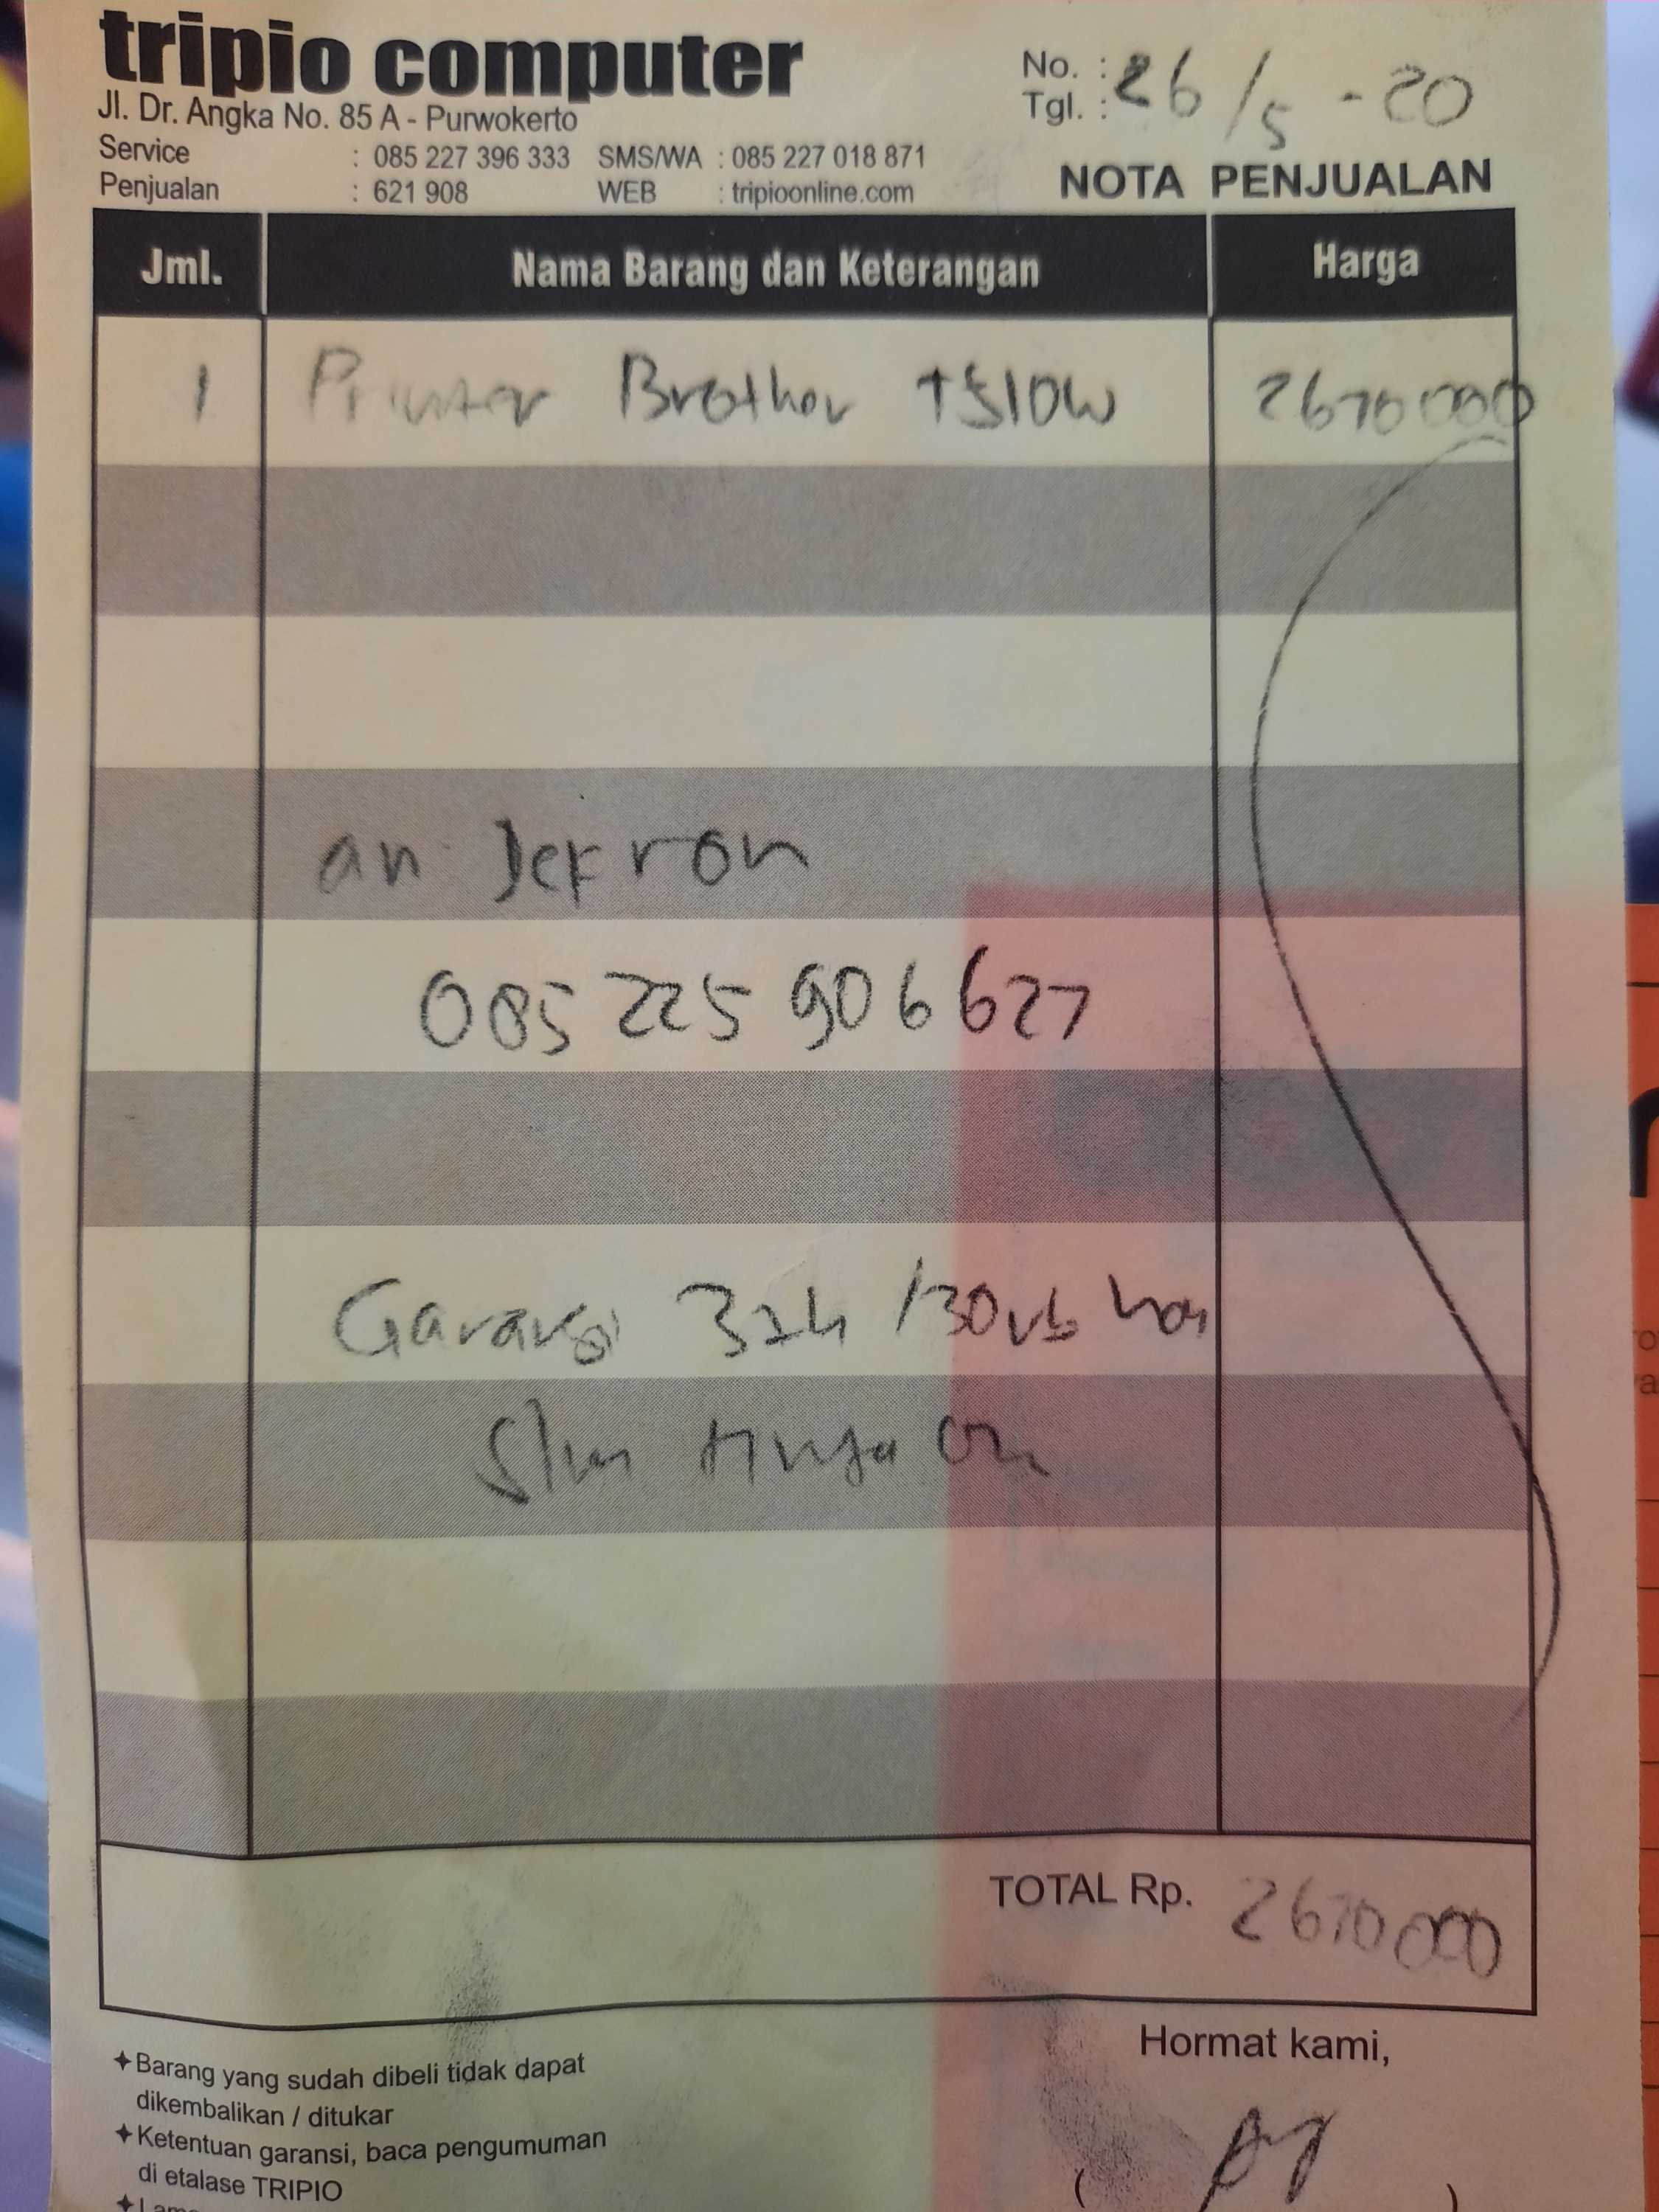 tripio computer
Jl. Dr. Angka No. 85 A - Purwokerto
Service : 085 227 396 333 SMS/WA : 085 227 018 871
Penjualan : 621 908 WEB : tripioonline.com
No. :
Tgl. : 26/5 - 20
NOTA PENJUALAN
Jml. Nama Barang dan Keterangan Harga
1 Printer Brother T510W 2670000
an
085 225 906 627
Garansi 3th /30rb
TOTAL Rp. 2670000
Hormat kami,
✦Barang yang sudah dibeli tidak dapat
dikembalikan / ditukar
✦Ketentuan garansi, baca pengumuman
di etalase TRIPIO
( )